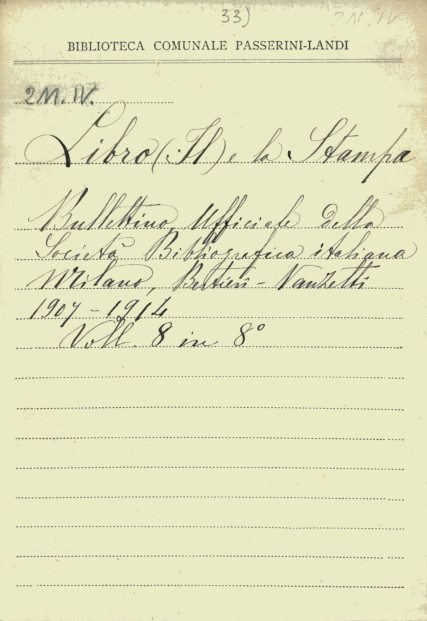 33)
2M.IV.
BIBLIOTECA COMUNALE PASSERINI-LANDI
2M.IV.
Libro (Il) e la Stampa
Bullettino Ufficiale della
Società Bibliografica italiana
Milano, Bertieri-Vanzetti
1907-1914
Voll. 8 in 8°